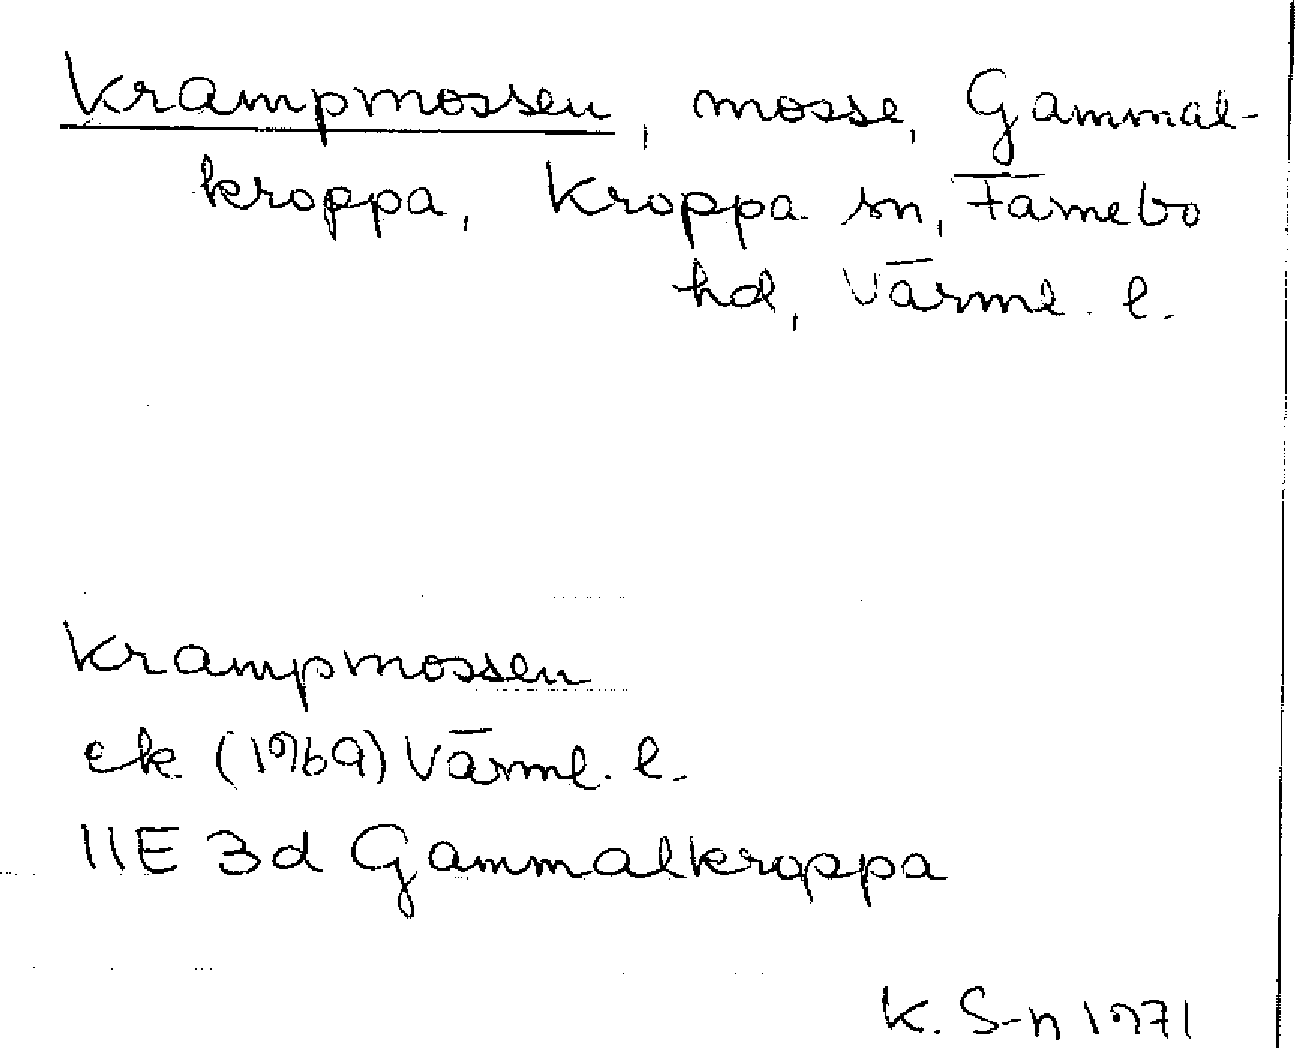 Krampmossen, mosse, Gammal-
kroppa, Kroppa sn, Färnebo
hd, Värml. l.
Krampmossen
ek (1969) Värml. l.
11E 3d Gammalkroppa
K. S-n 1971